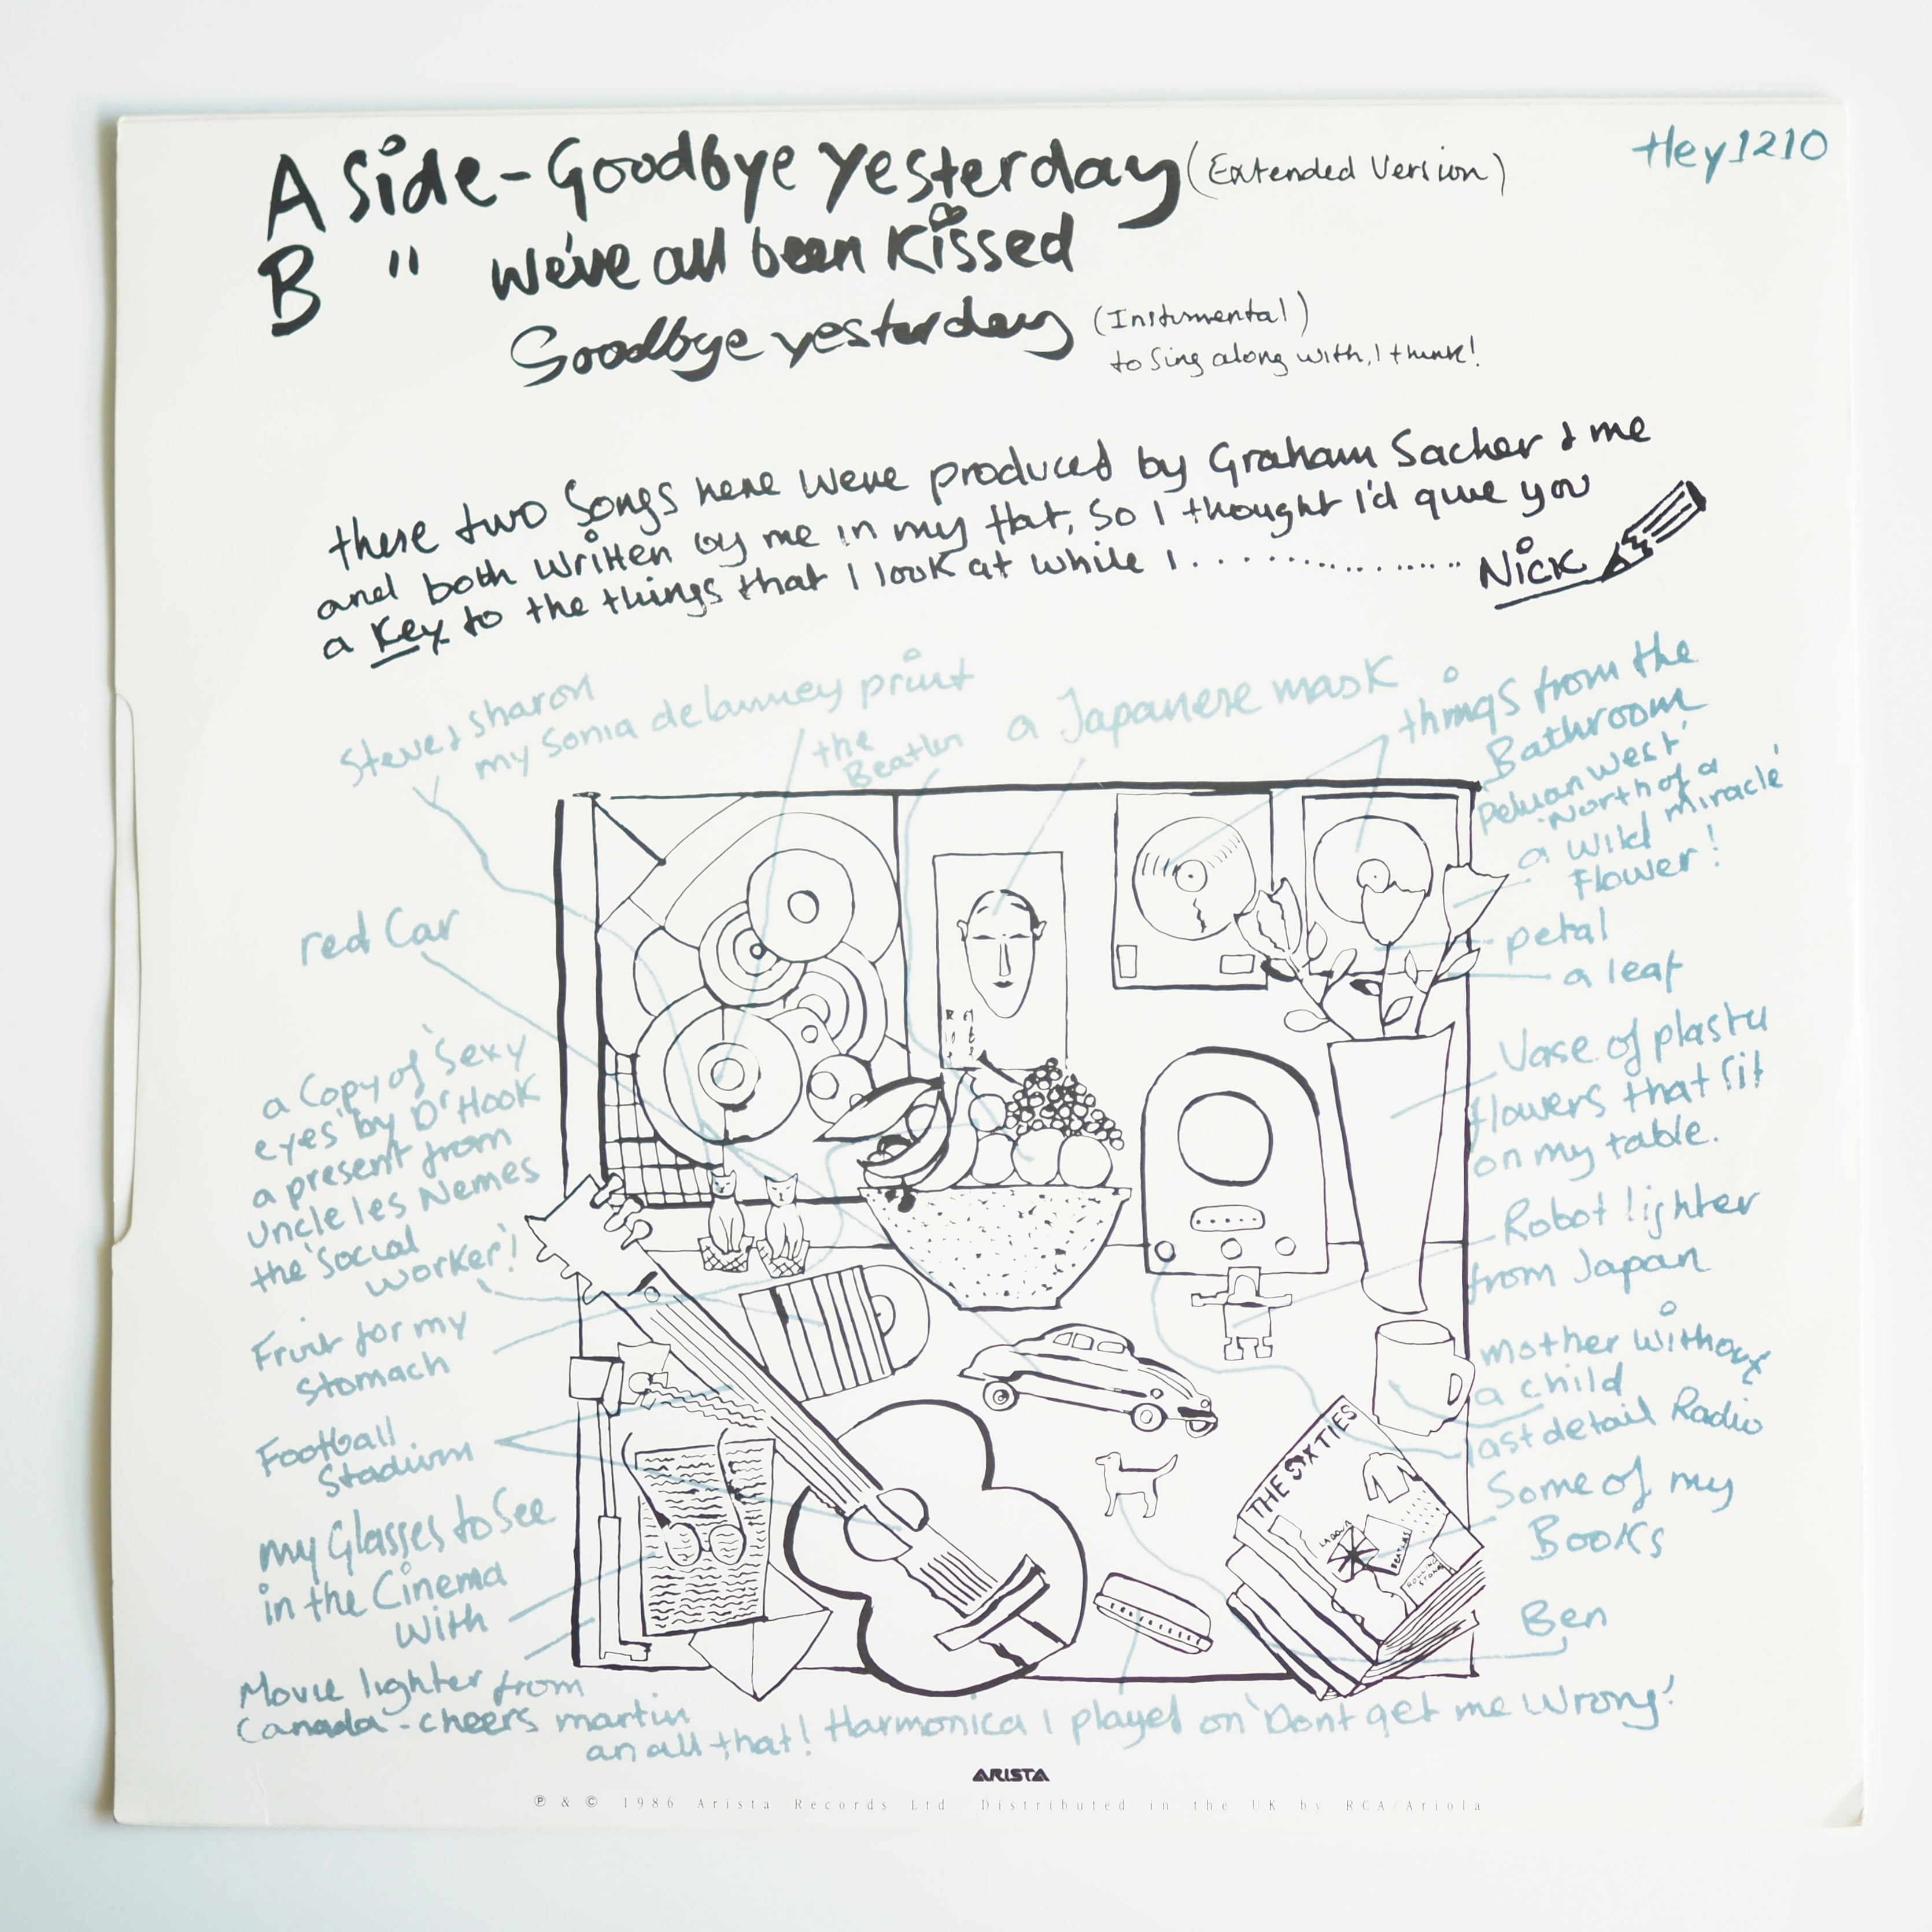 A Side - Goodbye yesterday (Extended Version)
Hey1210
B " We've all been Kissed
Goodbye yesterday (Instrumental)
to Sing along with, I think!
these two Songs here were produced by Graham Sacher & me
and both written by me in my flat, So I thought I'd give you
a Key to the things that I look at while I . . . . . . . . . . . . . . . . . Nick
Steve & Sharon
my Sonia delauney print
the
Beatles
a Japanese mask
things from the
Bathroom
west'
'North of a
miracle'
a wild
Flower!
red Car
petal
a leaf
a Copy of 'Sexy
eyes' by Dr Hook
a present from
uncle les Nemes
the 'Social
worker'!
Vase of plastic
flowers that sit
on my table.
Robot lighter
from Japan
Fruit for my
stomach
mother without
a child
last detail Radio
Football
Stadium
Some of my
Books
my Glasses to See
in the Cinema
with
Ben
Movie lighter from
Canada - cheers martin
an all that!
Harmonica I played on 'Dont get me Wrong!'
THE SIXTIES
BEATLES
ROLLING
STONES
ARISTA
℗ & © 1986 Arista Records Ltd. Distributed in the UK by RCA/Ariola